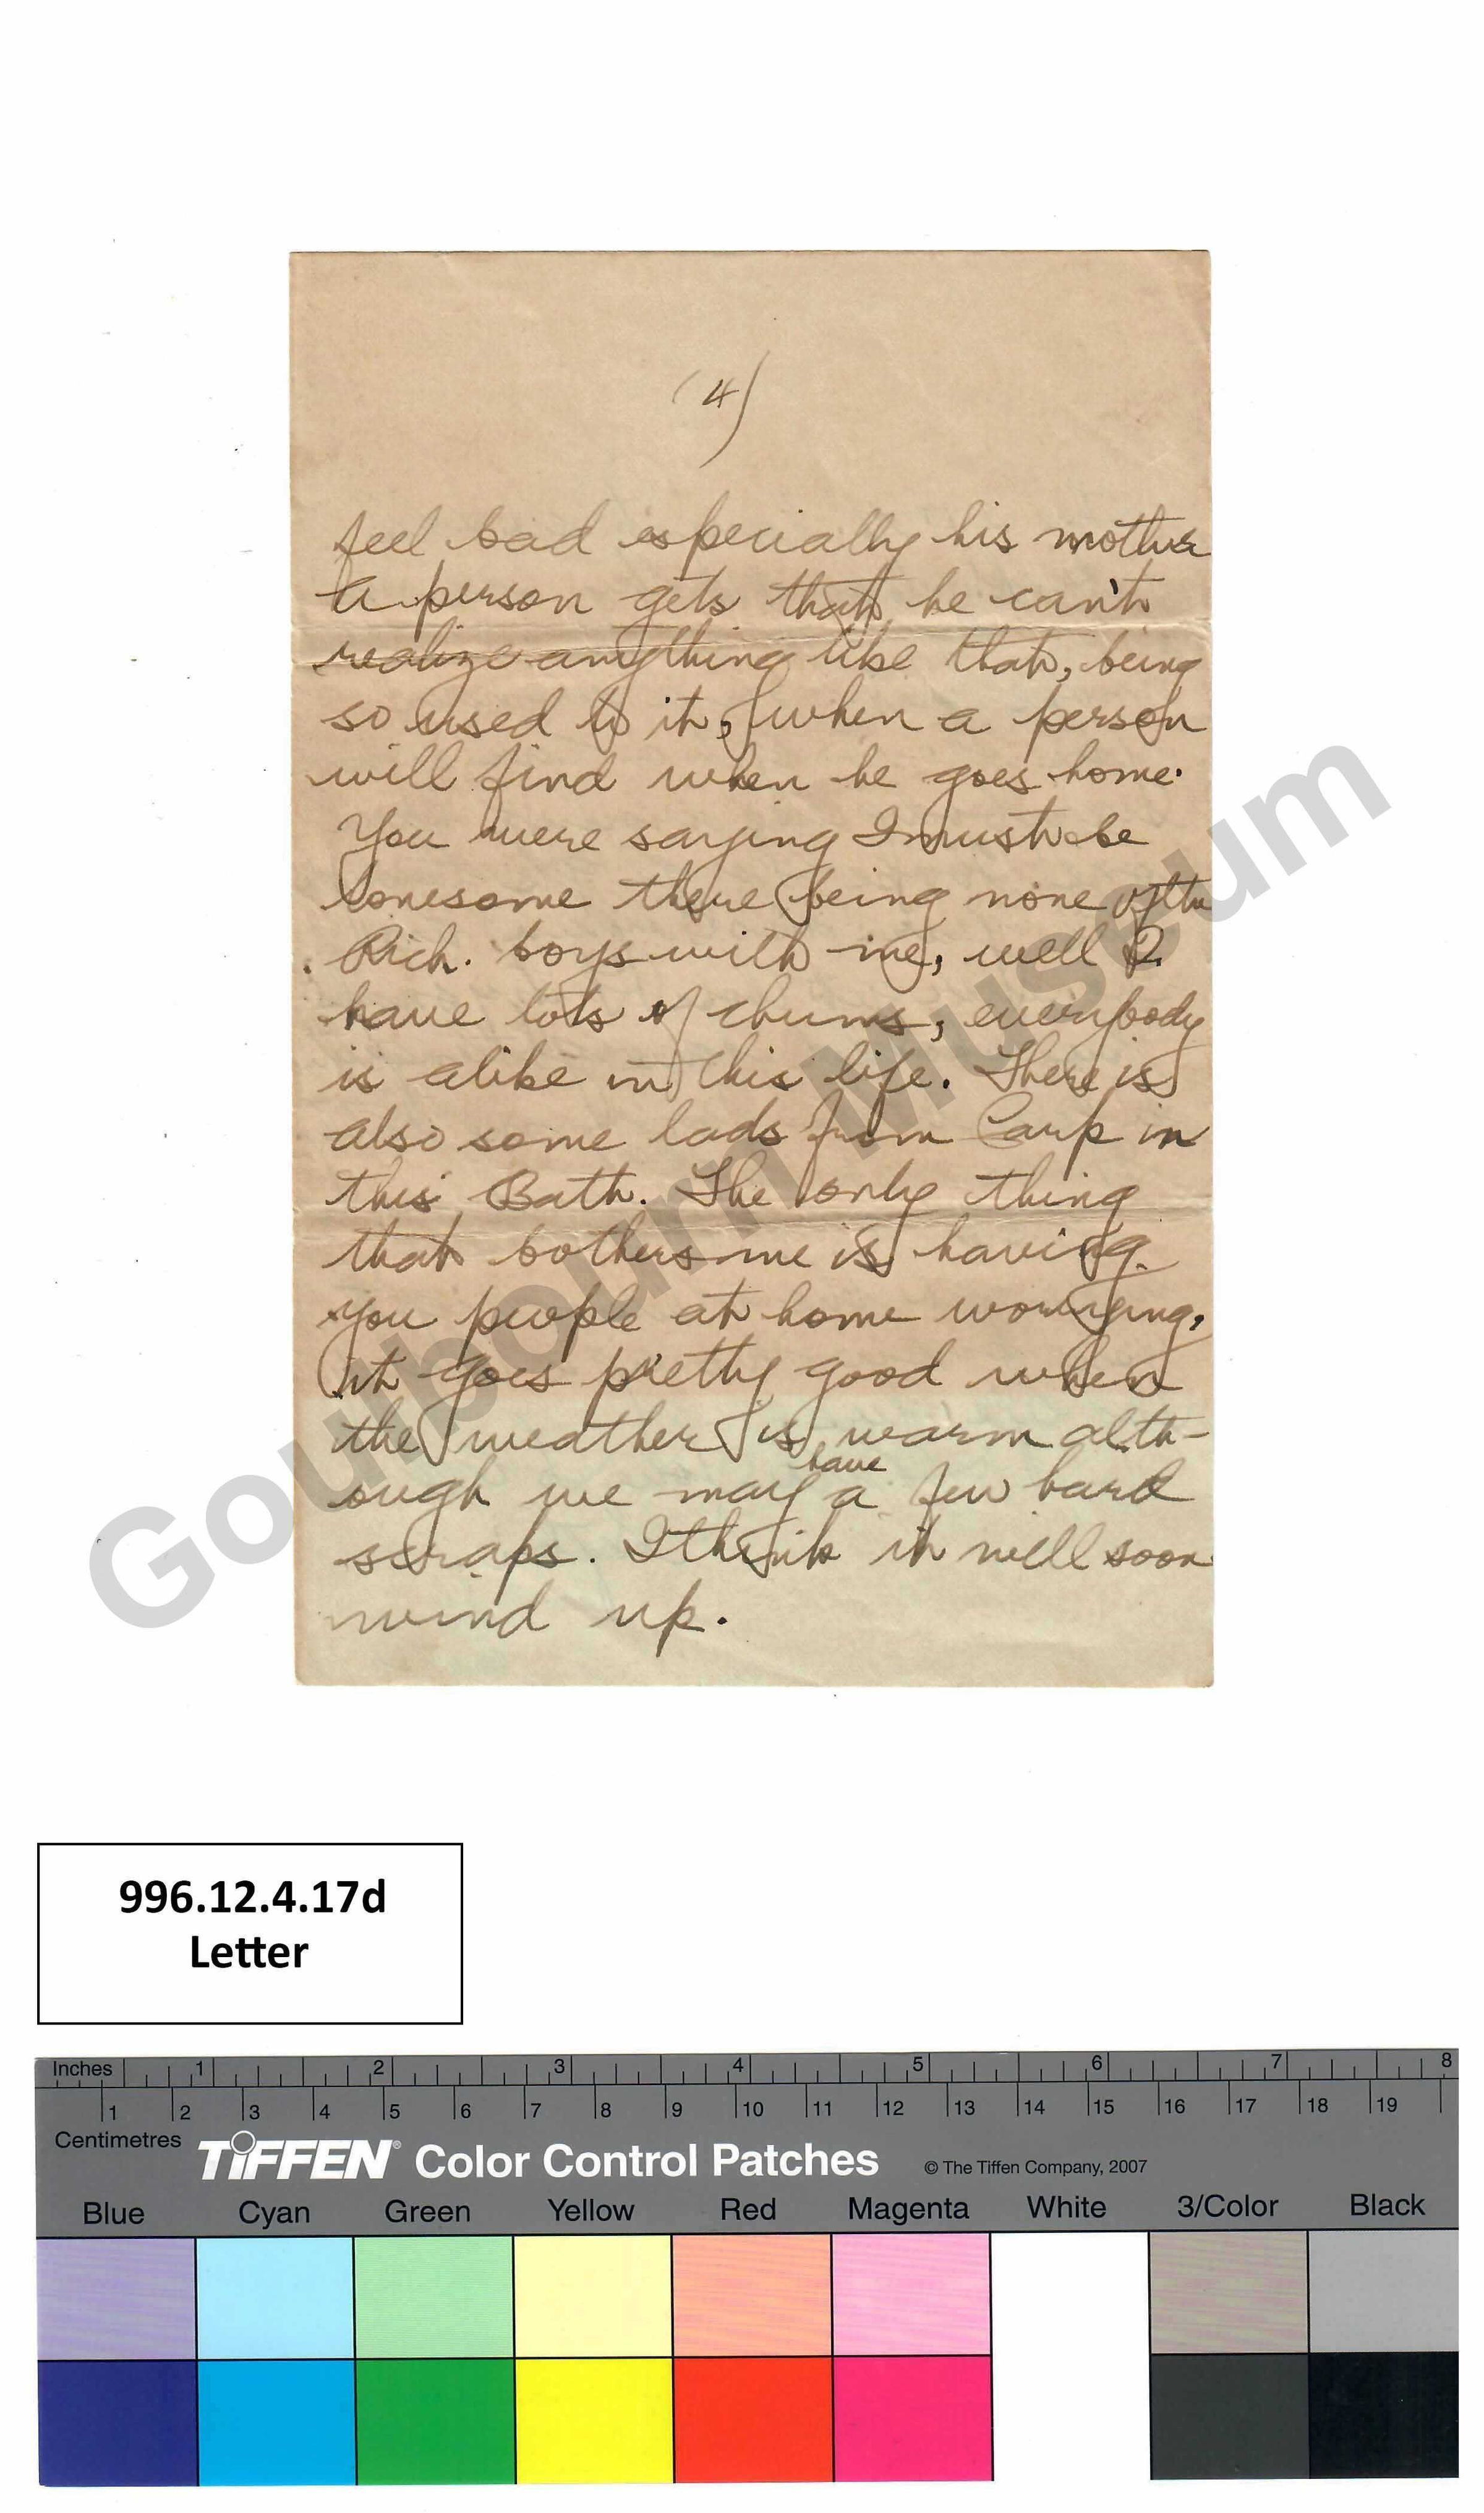 (4)
feel bad especially his mother
a person gets that he can't
realize anything like that, being
so used to it, when a person
will find when he goes home.
You were saying I must be
lonesome there being none of the
Rich. boys with me, well I
have lots of chums, everybody
is alike in this life. There is
also some lads from Carp in
this Batt. The only thing
that bothers me is having
you people at home worrying,
it goes pretty good when
the weather is warm alth-
have
ough we may a few hard
scraps. I think it will soon
wind up.
Goulbourn Museum
996.12.4.17d
Letter
Inches 1 2 3 4 5 6 7 8
1 2 3 4 5 6 7 8 9 10 11 12 13 14 15 16 17 18 19
Centimetres
TIFFEN® Color Control Patches © The Tiffen Company, 2007
Blue Cyan Green Yellow Red Magenta White 3/Color Black